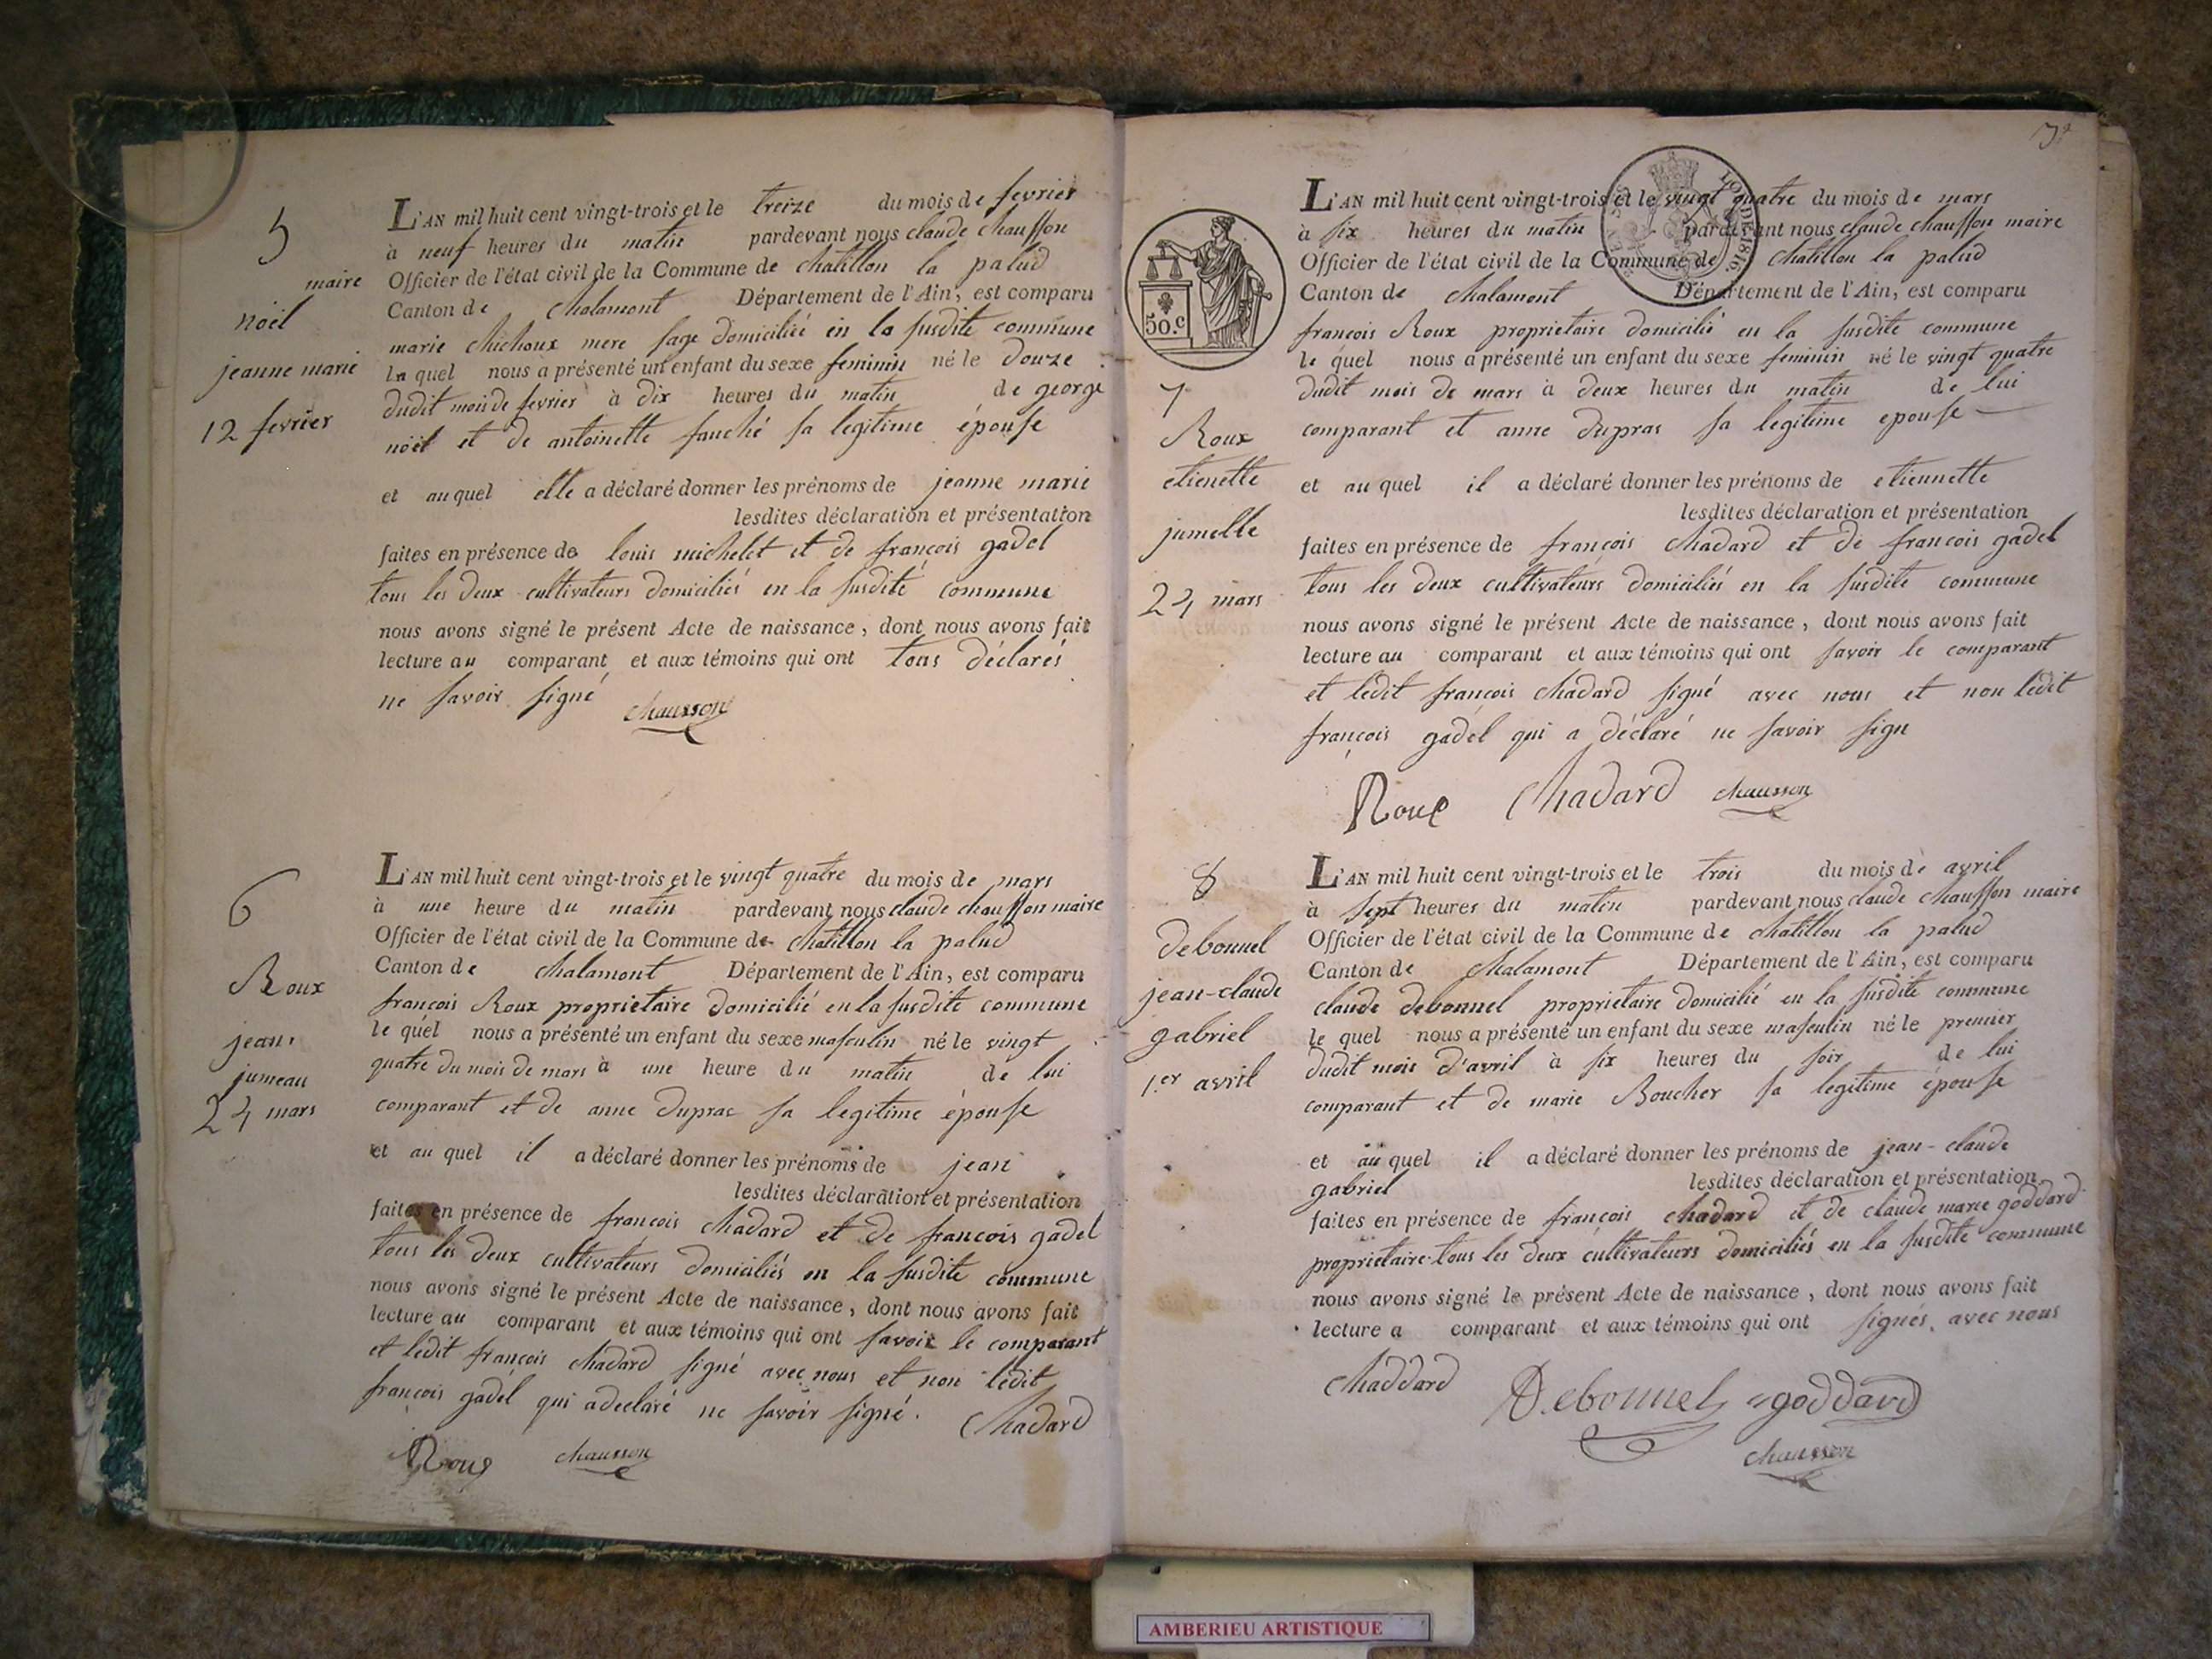 5
maire
noël
jeanne marie
12 fevrier
L'AN mil huit cent vingt-trois et le treize du mois de fevrier
à neuf heures du matin pardevant nous claude chausson
Officier de l'état civil de la Commune de chatillon la palud
Canton de chalamont Département de l'Ain, est comparu
marie chichoux mere sage domiciliée en la susdite commune
la quel nous a présenté un enfant du sexe feminin né le douze
dudit mois de fevrier à dix heures du matin de george
nöel et de antoinette fauché sa legitime épouse
et au quel elle a déclaré donner les prénoms de jeanne marie
lesdites déclaration et présentation
faites en présence de louis michelet et de françois gadel
tous les deux cultivateurs domiciliés en la susdite commune
nous avons signé le présent Acte de naissance, dont nous avons fait
lecture au comparant et aux témoins qui ont tous déclarés
ne savoir signé
chausson
6
Roux
jean
jumeau
24 mars
L'AN mil huit cent vingt-trois et le vingt quatre du mois de mars
à une heure du matin pardevant nous claude chausson maire
Officier de l'état civil de la Commune de chatillon la palud
Canton de chalamont Département de l'Ain, est comparu
françois Roux proprietaire domicilié en la susdite commune
le quel nous a présenté un enfant du sexe masculin né le vingt
quatre du mois de mars à une heure du matin de lui
comparant et de anne dupras sa legitime épouse
et au quel il a déclaré donner les prénoms de jean
lesdites déclaration et présentation
faites en présence de françois chadard et de françois gadel
tous les deux cultivateurs domiciliés en la susdite commune
nous avons signé le présent Acte de naissance, dont nous avons fait
lecture au comparant et aux témoins qui ont savoir le comparant
et ledit françois chadard signé avec nous et non ledit
françois gadel qui a declaré ne savoir signé.
Chadard
Roux chausson
50.c
7
Roux
etienette
jumelle
24 mars
L'AN mil huit cent vingt-trois et le vingt quatre du mois de mars
à six heures du matin pardevant nous claude chausson maire
Officier de l'état civil de la Commune de chatillon la palud
Canton de chalamont Département de l'Ain, est comparu
francois Roux proprietaire domicilié en la susdite commune
le quel nous a présenté un enfant du sexe feminin né le vingt quatre
dudit mois de mars à deux heures du matin de lui
comparant et anne dupras sa legitime epouse
et au quel il a déclaré donner les prénoms de etiennette
lesdites déclaration et présentation
faites en présence de françois chadard et de francois gadel
tous les deux cultivateurs domiciliés en la susdite commune
nous avons signé le présent Acte de naissance, dont nous avons fait
lecture au comparant et aux témoins qui ont savoir le comparant
et ledit françois chadard signé avec nous et non ledit
françois gadel qui a déclaré ne savoir sign
Roux Chadard chausson
8
debonnel
jean-claude
gabriel
1.er avril
L'AN mil huit cent vingt-trois et le trois du mois de avril
à sept heures du matin pardevant nous claude chausson maire
Officier de l'état civil de la Commune de chatillon la palud
Canton de chalamont Département de l'Ain, est comparu
claude debonnel proprietaire domicilié en la susdite commune
le quel nous a présenté un enfant du sexe masculin né le premier
dudit mois d'avril à six heures du soir de lui
comparant et de marie Boucher sa legitime épouse
et au quel il a déclaré donner les prénoms de jean-claude
gabriel lesdites déclaration et présentation
faites en présence de françois chadard et de claude marie goddard
proprietaire tous les deux cultivateurs domiciliés en la susdite commune
nous avons signé le présent Acte de naissance, dont nous avons fait
lecture a comparant et aux témoins qui ont signés avec nous
Chaddard Debonnel goddard
chausson
AMBERIEU ARTISTIQUE